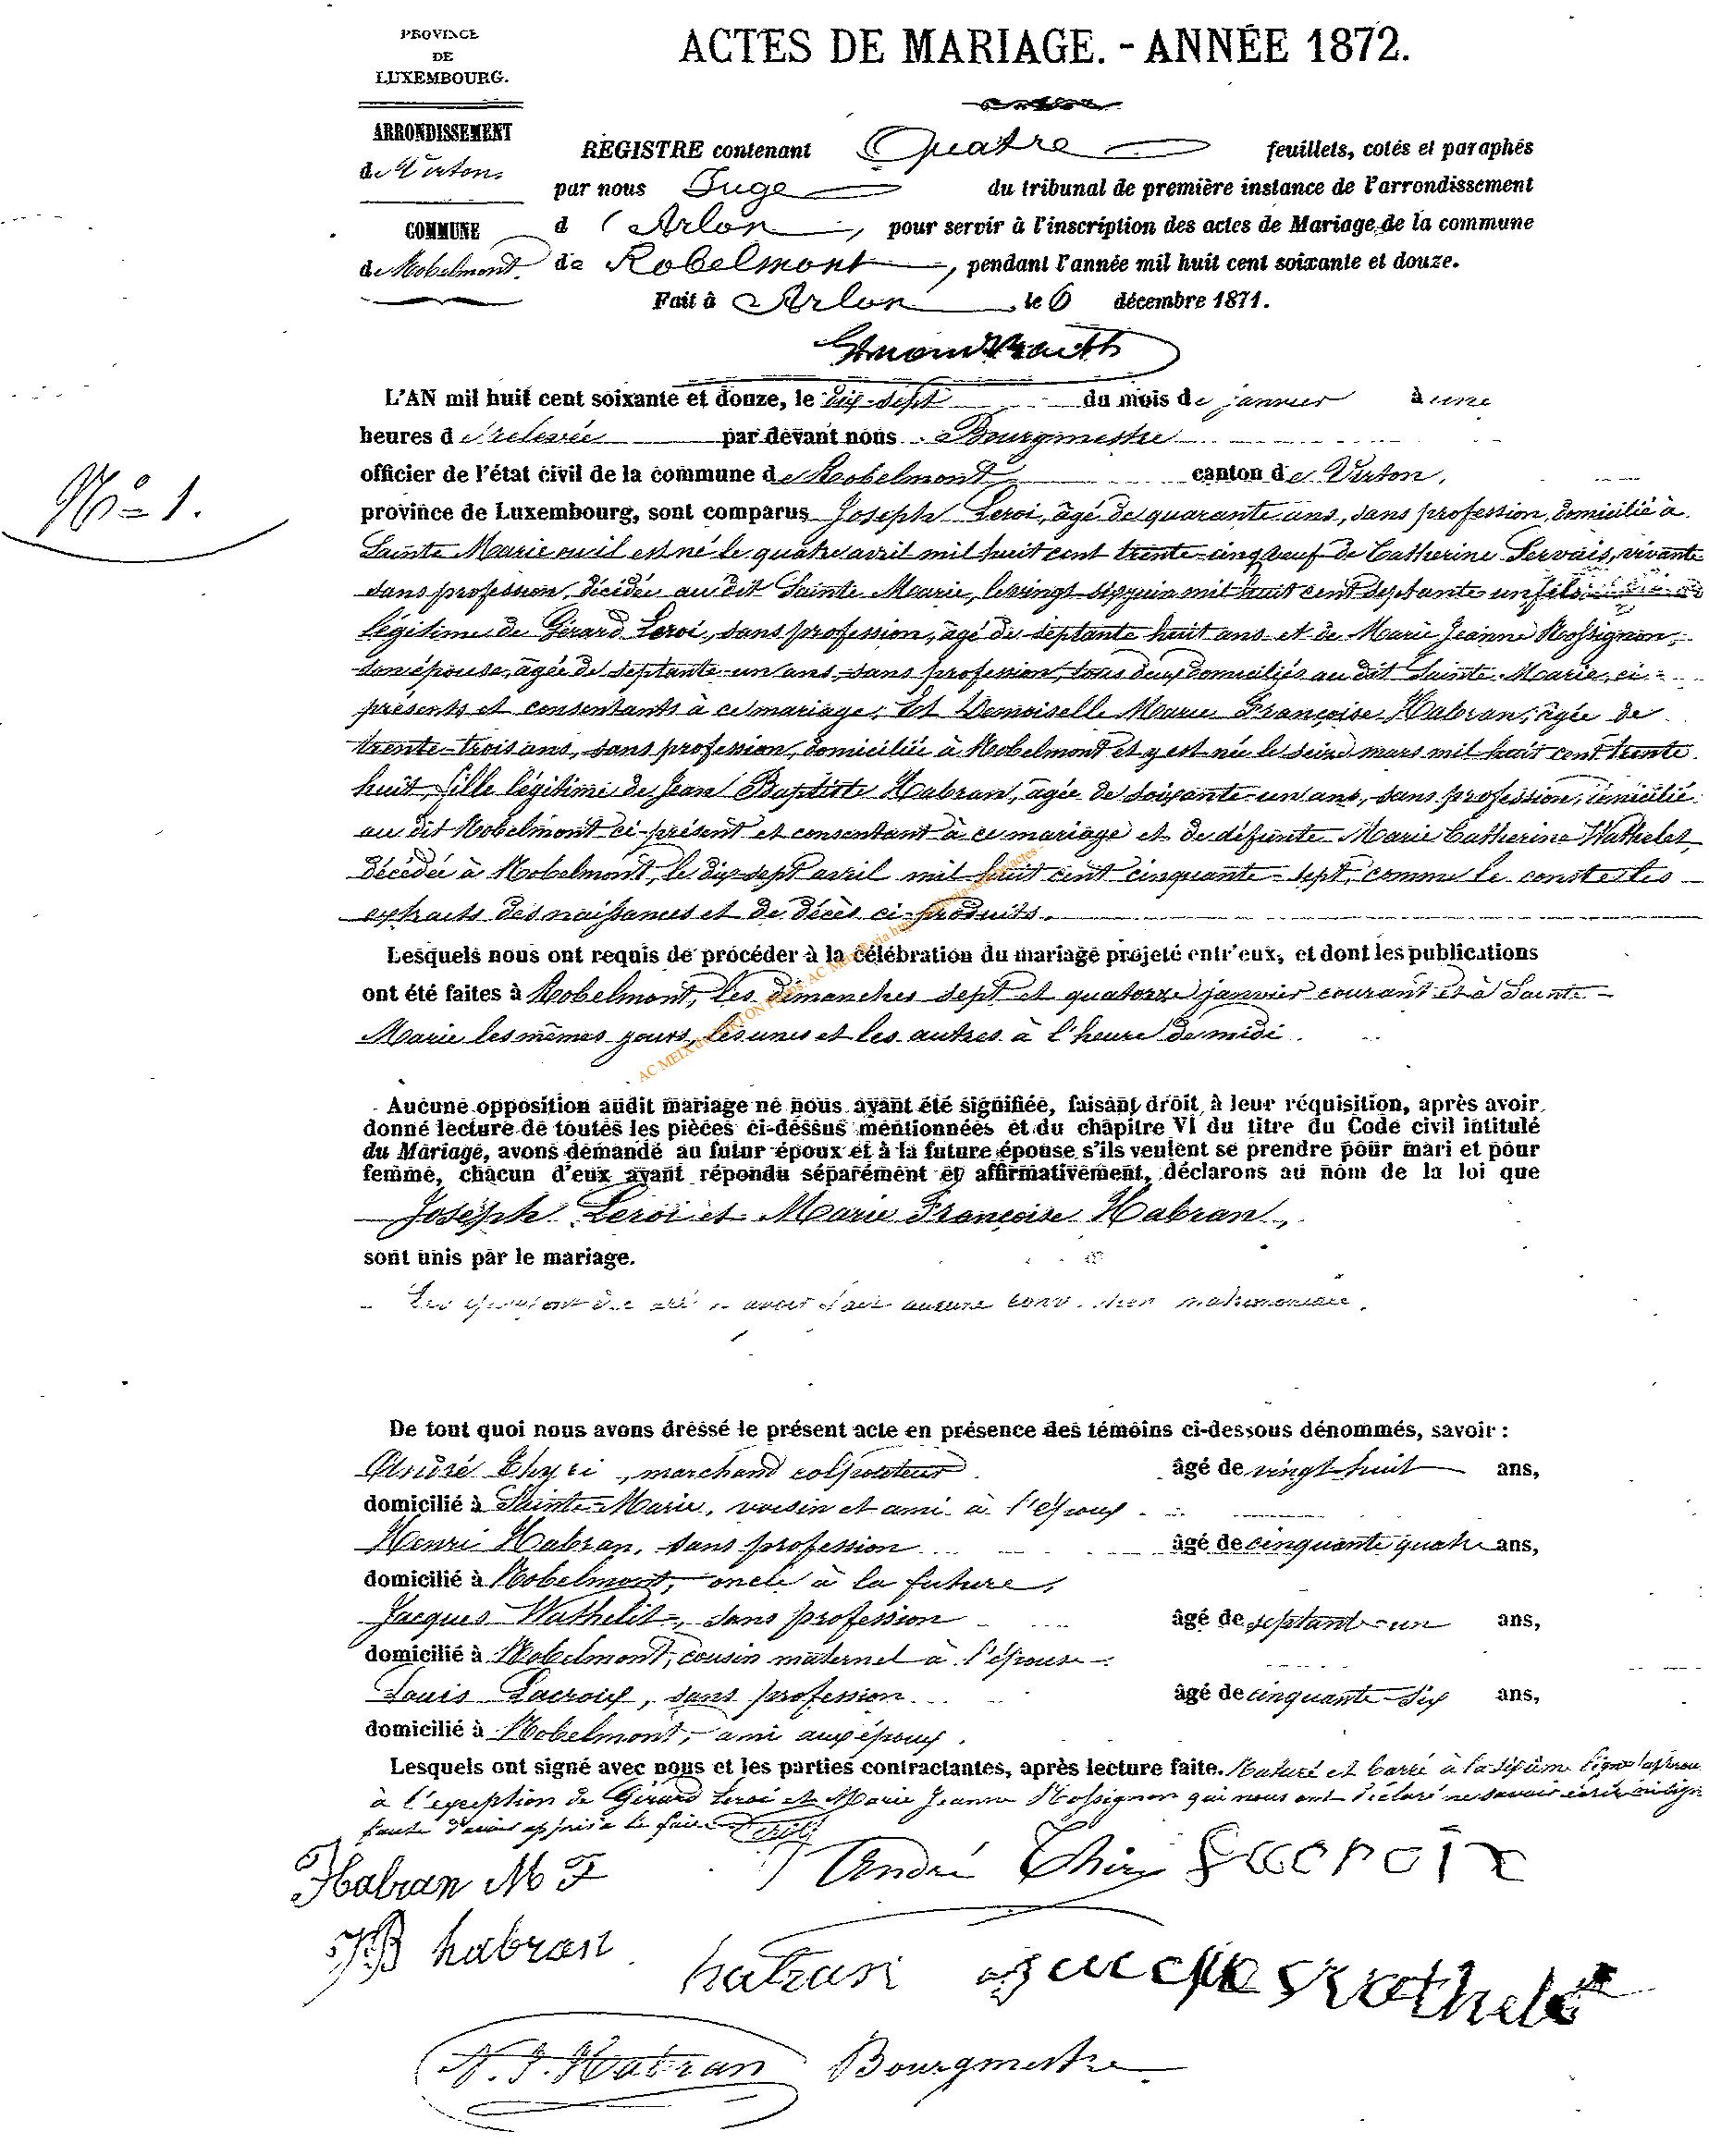 PROVINCE
DE
LUXEMBOURG.
ARRONDISSEMENT
de Virton.
COMMUNE
de Robelmont.
ACTES DE MARIAGE. - ANNÉE 1872.
REGISTRE contenant Quatre feuillets, cotés et paraphés
par nous Juge du tribunal de première instance de l'arrondissement
d Arlon, pour servir à l'inscription des actes de Mariage de la commune
de Robelmont, pendant l'année mil huit cent soixante et douze.
Fait à Arlon, le 6 décembre 1871.
N° 1.
L'AN mil huit cent soixante et douze, le dix-sept du mois de janvier à une
heures de relevée par devant nous Bourgmestre
officier de l'état civil de la commune de Robelmont canton de Virton,
province de Luxembourg, sont comparus Joseph Leroi, âgé de quarante ans, sans profession, domicilié à
Sainte Marie où il est né le quatre avril mil huit cent trente-cinq veuf de Catherine Servais, vivante
sans profession, décédée au dit Sainte Marie, le vingt six juin mil huit cent septante un fils
légitime de Gérard Leroi, sans profession, âgé de septante huit ans et de Marie Jeanne Rossignon,
son épouse, âgée de septante-un ans, sans profession, tous deux domiciliés au dit Sainte-Marie, ci-
présents et consentants à ce mariage; Et Demoiselle Marie Françoise Habran, âgée de
trente-trois ans, sans profession, domiciliée à Robelmont et y est née le seize mars mil huit cent trente
huit, fille légitime de Jean Baptiste Habran, âgée de soixante-un ans, sans profession, domicilié
au dit Robelmont ci-présent et consentant à ce mariage et de défunte Marie Catherine Wathelet,
décédée à Robelmont, le dix-sept avril mil huit cent cinquante-sept, comme le constes les
extraits des naissances et de décès ci-produits.
Lesquels nous ont requis de procéder à la célébration du mariage projeté entr'eux, et dont les publications
ont été faites à Robelmont, les dimanches sept et quatorze janvier courant et à Sainte-
Marie les mêmes jours, les unes et les autres à l'heure de midi.
AC MEIX via
Aucune opposition audit mariage ne nous ayant été signifiée, faisant droit à leur réquisition, après avoir
donné lecture de toutes les pièces ci-dessus mentionnées et du chapitre VI du titre du Code civil intitulé
du Mariage, avons demandé au futur époux et à la future épouse s'ils veulent se prendre pour mari et pour
femme, chacun d'eux ayant répondu séparément et affirmativement, déclarons au nom de la loi que
Joseph Leroi et Marie Françoise Habran,
sont unis par le mariage.
Les époux ont avoir fait aucune matrimoniale.
De tout quoi nous avons dressé le présent acte en présence des témoins ci-dessous dénommés, savoir :
André Thyri, marchand colporteur âgé de vingt huit ans,
domicilié à Sainte-Marie, voisin et ami à l'époux
Henri Habran, sans profession âgé de cinquante quatre ans,
domicilié à Robelmont, oncle à la future,
Jacques Wathelet, sans profession âgé de septante-un ans,
domicilié à Robelmont, cousin maternel à l'épouse
Louis Lacroix, sans profession âgé de cinquante-six ans,
domicilié à Robelmont, ami aux époux.
Lesquels ont signé avec nous et les parties contractantes, après lecture faite. Raturé et barré à la sixième ligne
à l'exception de Gérard Leroi et Marie Jeanne Rossignon qui nous ont déclaré ne savoir écrire ni signer
faute d'avoir appris à le faire
Habran M F André Thiry Lacroix
J B habran habran jacques wathelet
N. J. Habran Bourgmestre